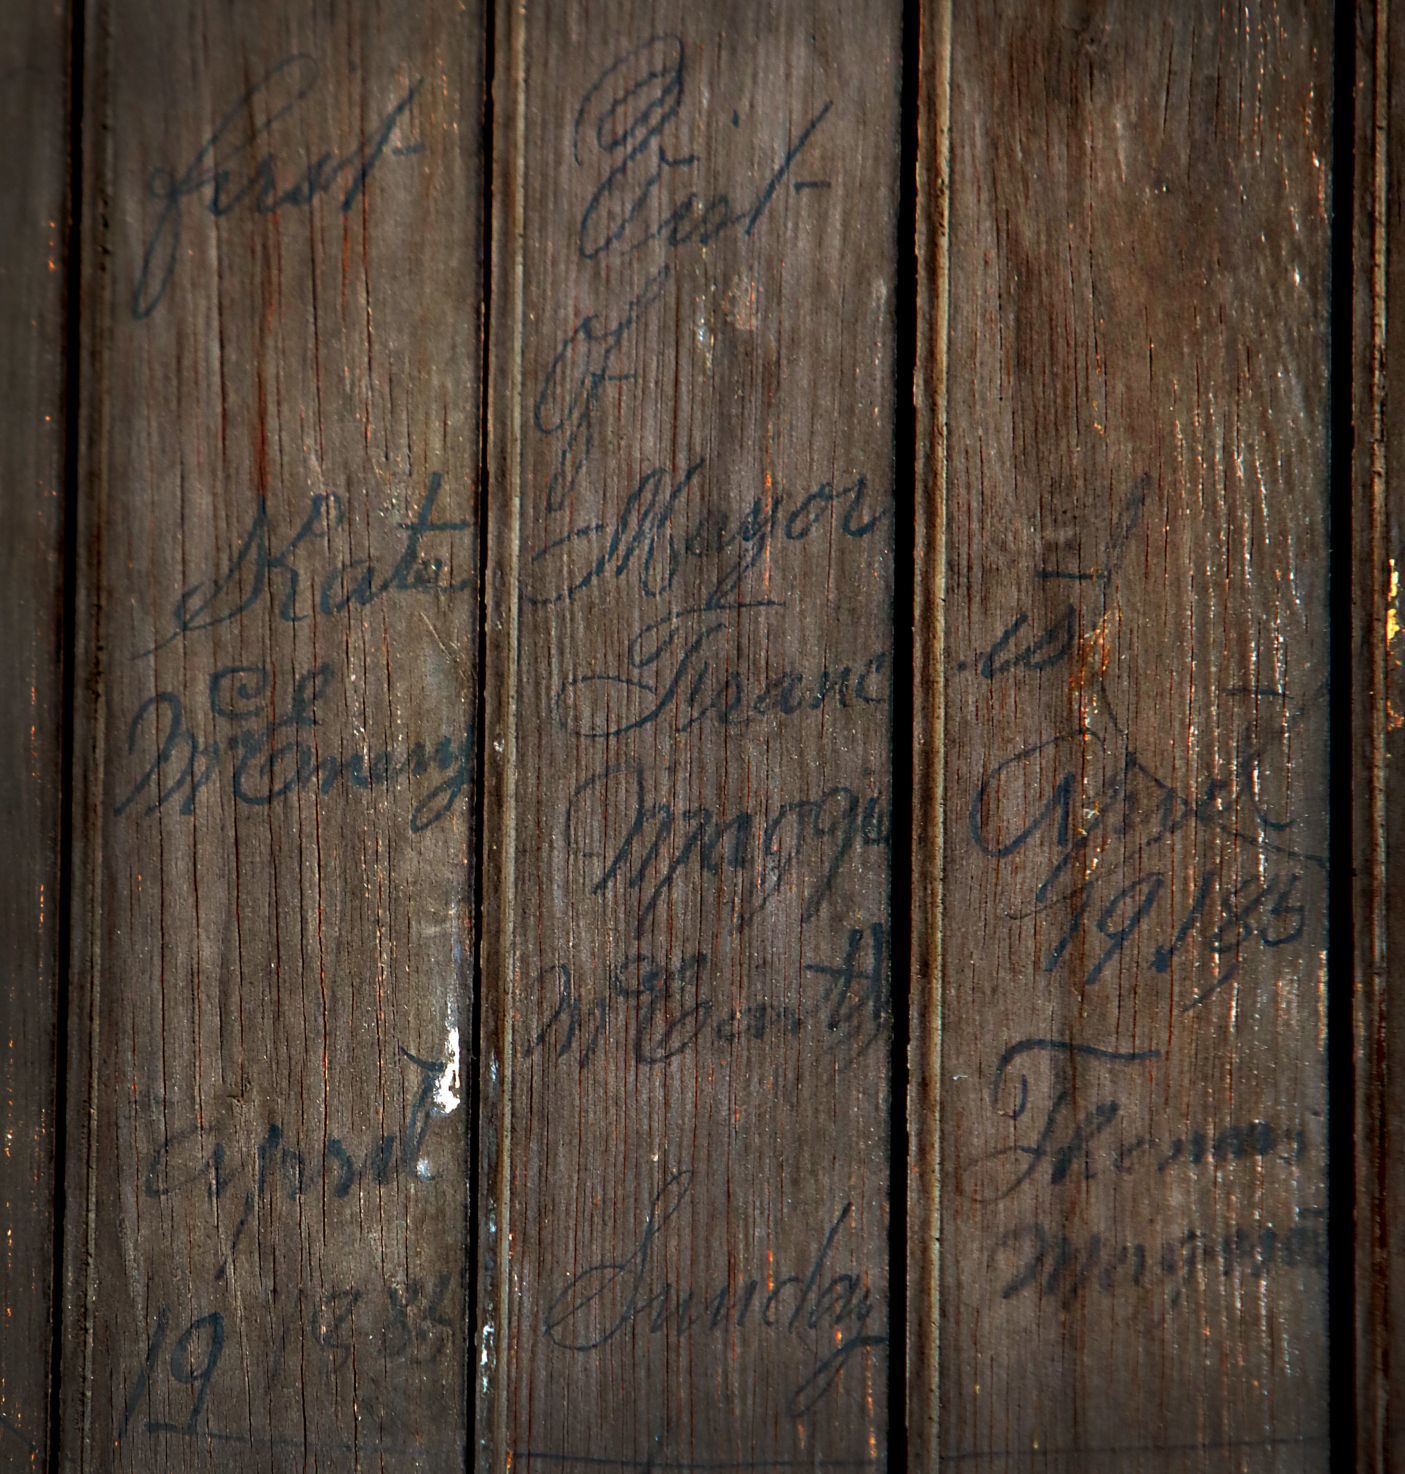 first
Kate
McEnery
April
19 1885
First
of
Mayor
Francis
Maggie
McCarthy
Sunday
April
19 1885
Thomas